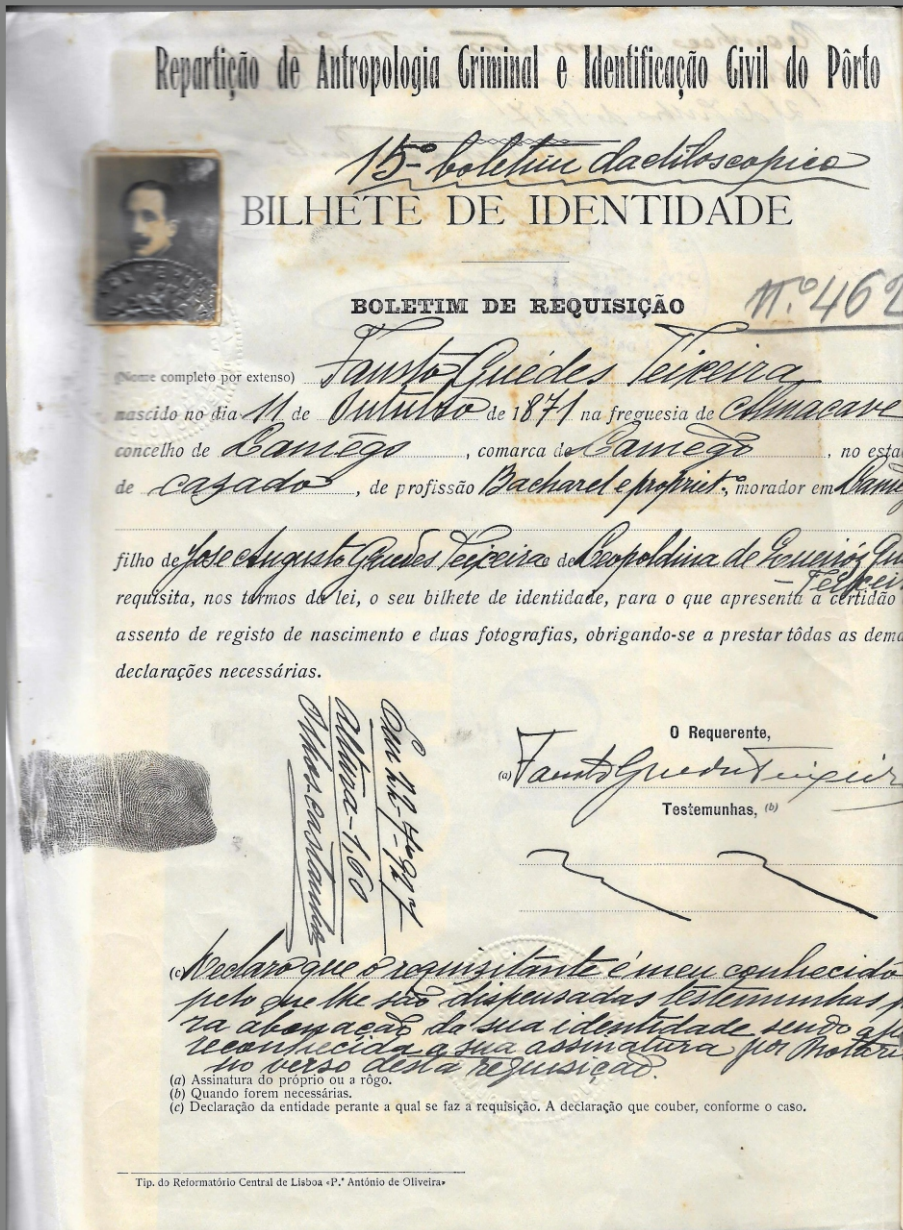 Repartição de Antropologia Criminal e Identificação Civil do Pôrto
15º boletim dactiloscopico
BILHETE DE IDENTIDADE
BOLETIM DE REQUISIÇÃO
Nº 462
(Nome completo por extenso) Fausto Guédes Teixeira
nascido no dia 11 de Outubro de 1871 na freguesia de Almacave
concelho de Lamêgo, comarca de Lamêgo, no esta
de casado, de profissão Bacharel e propriet., morador em Lame
filho de Jose Augusto Guedes Teixeira e de Leopoldina de Queiróz Gu
Teixei
requisita, nos termos da lei, o seu bilhete de identidade, para o que apresenta a certidão
assento de registo de nascimento e duas fotografias, obrigando-se a prestar tôdas as dema
declarações necessárias.
Altura-1,60
Olhos castanhos
O Requerente,
(a) Fausto Guedes Teixeir
Testemunhas, (b)
(c) Declaro que o requisitante é meu conhecido
pelo que lhe são dispensadas testemunhas p
ra abonação da sua identidade sendo a
reconhecida a sua assinatura por Notari
no verso desta requisição.
(a) Assinatura do próprio ou a rôgo.
(b) Quando forem necessárias.
(c) Declaração da entidade perante a qual se faz a requisição. A declaração que couber, conforme o caso.
Tip. do Reformatório Central de Lisboa «P.ᵉ António de Oliveira»